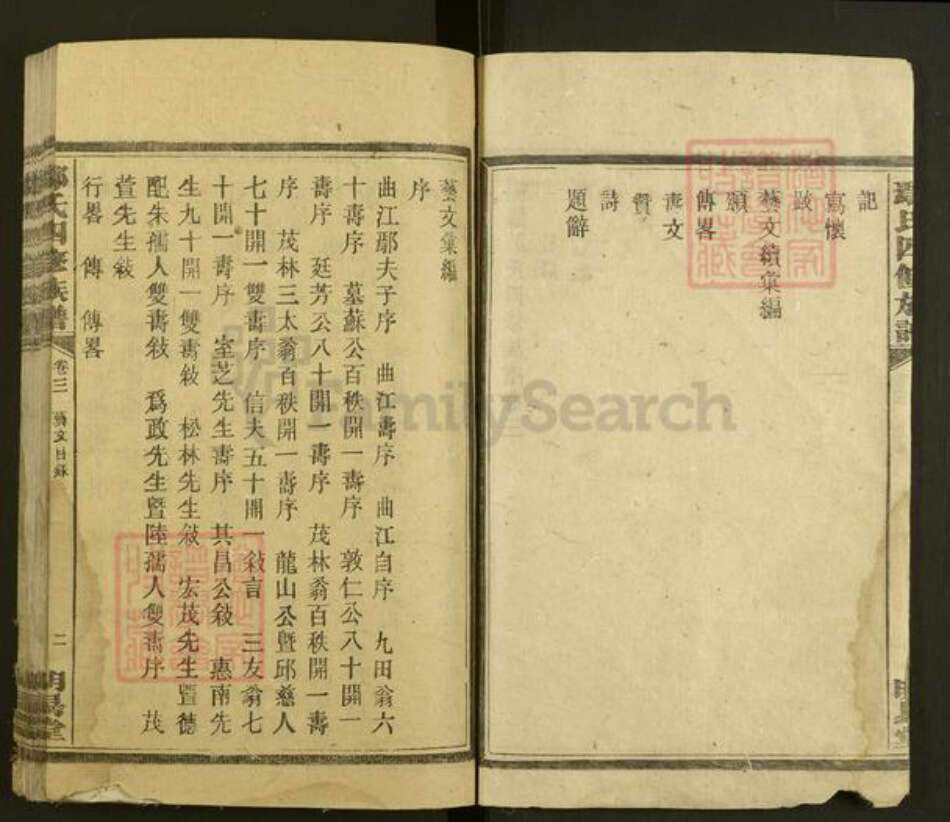 記
寫懷
跋
藝文續彙編
頌
傳畧
喪文
贊
詩
題辭
藝文彙編
序
曲江鄢夫子序 曲江壽序 曲江自序 九田翁六
十壽序 墓蘇公百秩開一壽序 敦仁公八十開一
壽序 廷芳公八十開一壽序 茂林翁百秩開一壽
序 茂林三太翁百秩開一壽序 龍山公曁邱慈人
七十開一雙壽序 信夫五十開一敍言 三友翁七
十開一壽序 室芝先生壽序 其昌公敍 惠南先
生九十開一雙壽敍 松林先生敍 宏茂先生曁德
配朱孺人雙壽敍 爲政先生曁陸孺人雙壽序 茂
萱先生敍
行畧 傳 傳畧
氏四修族譜
卷三 藝文目錄
二
明
堂
FamilySearch